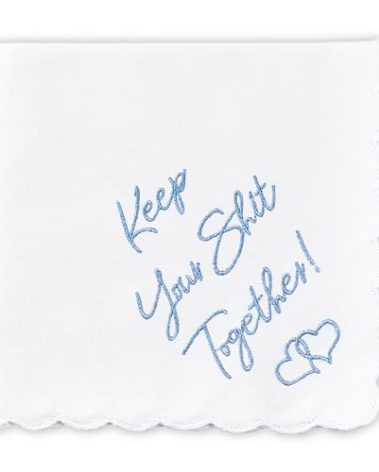 Keep
Your Shit
Together!